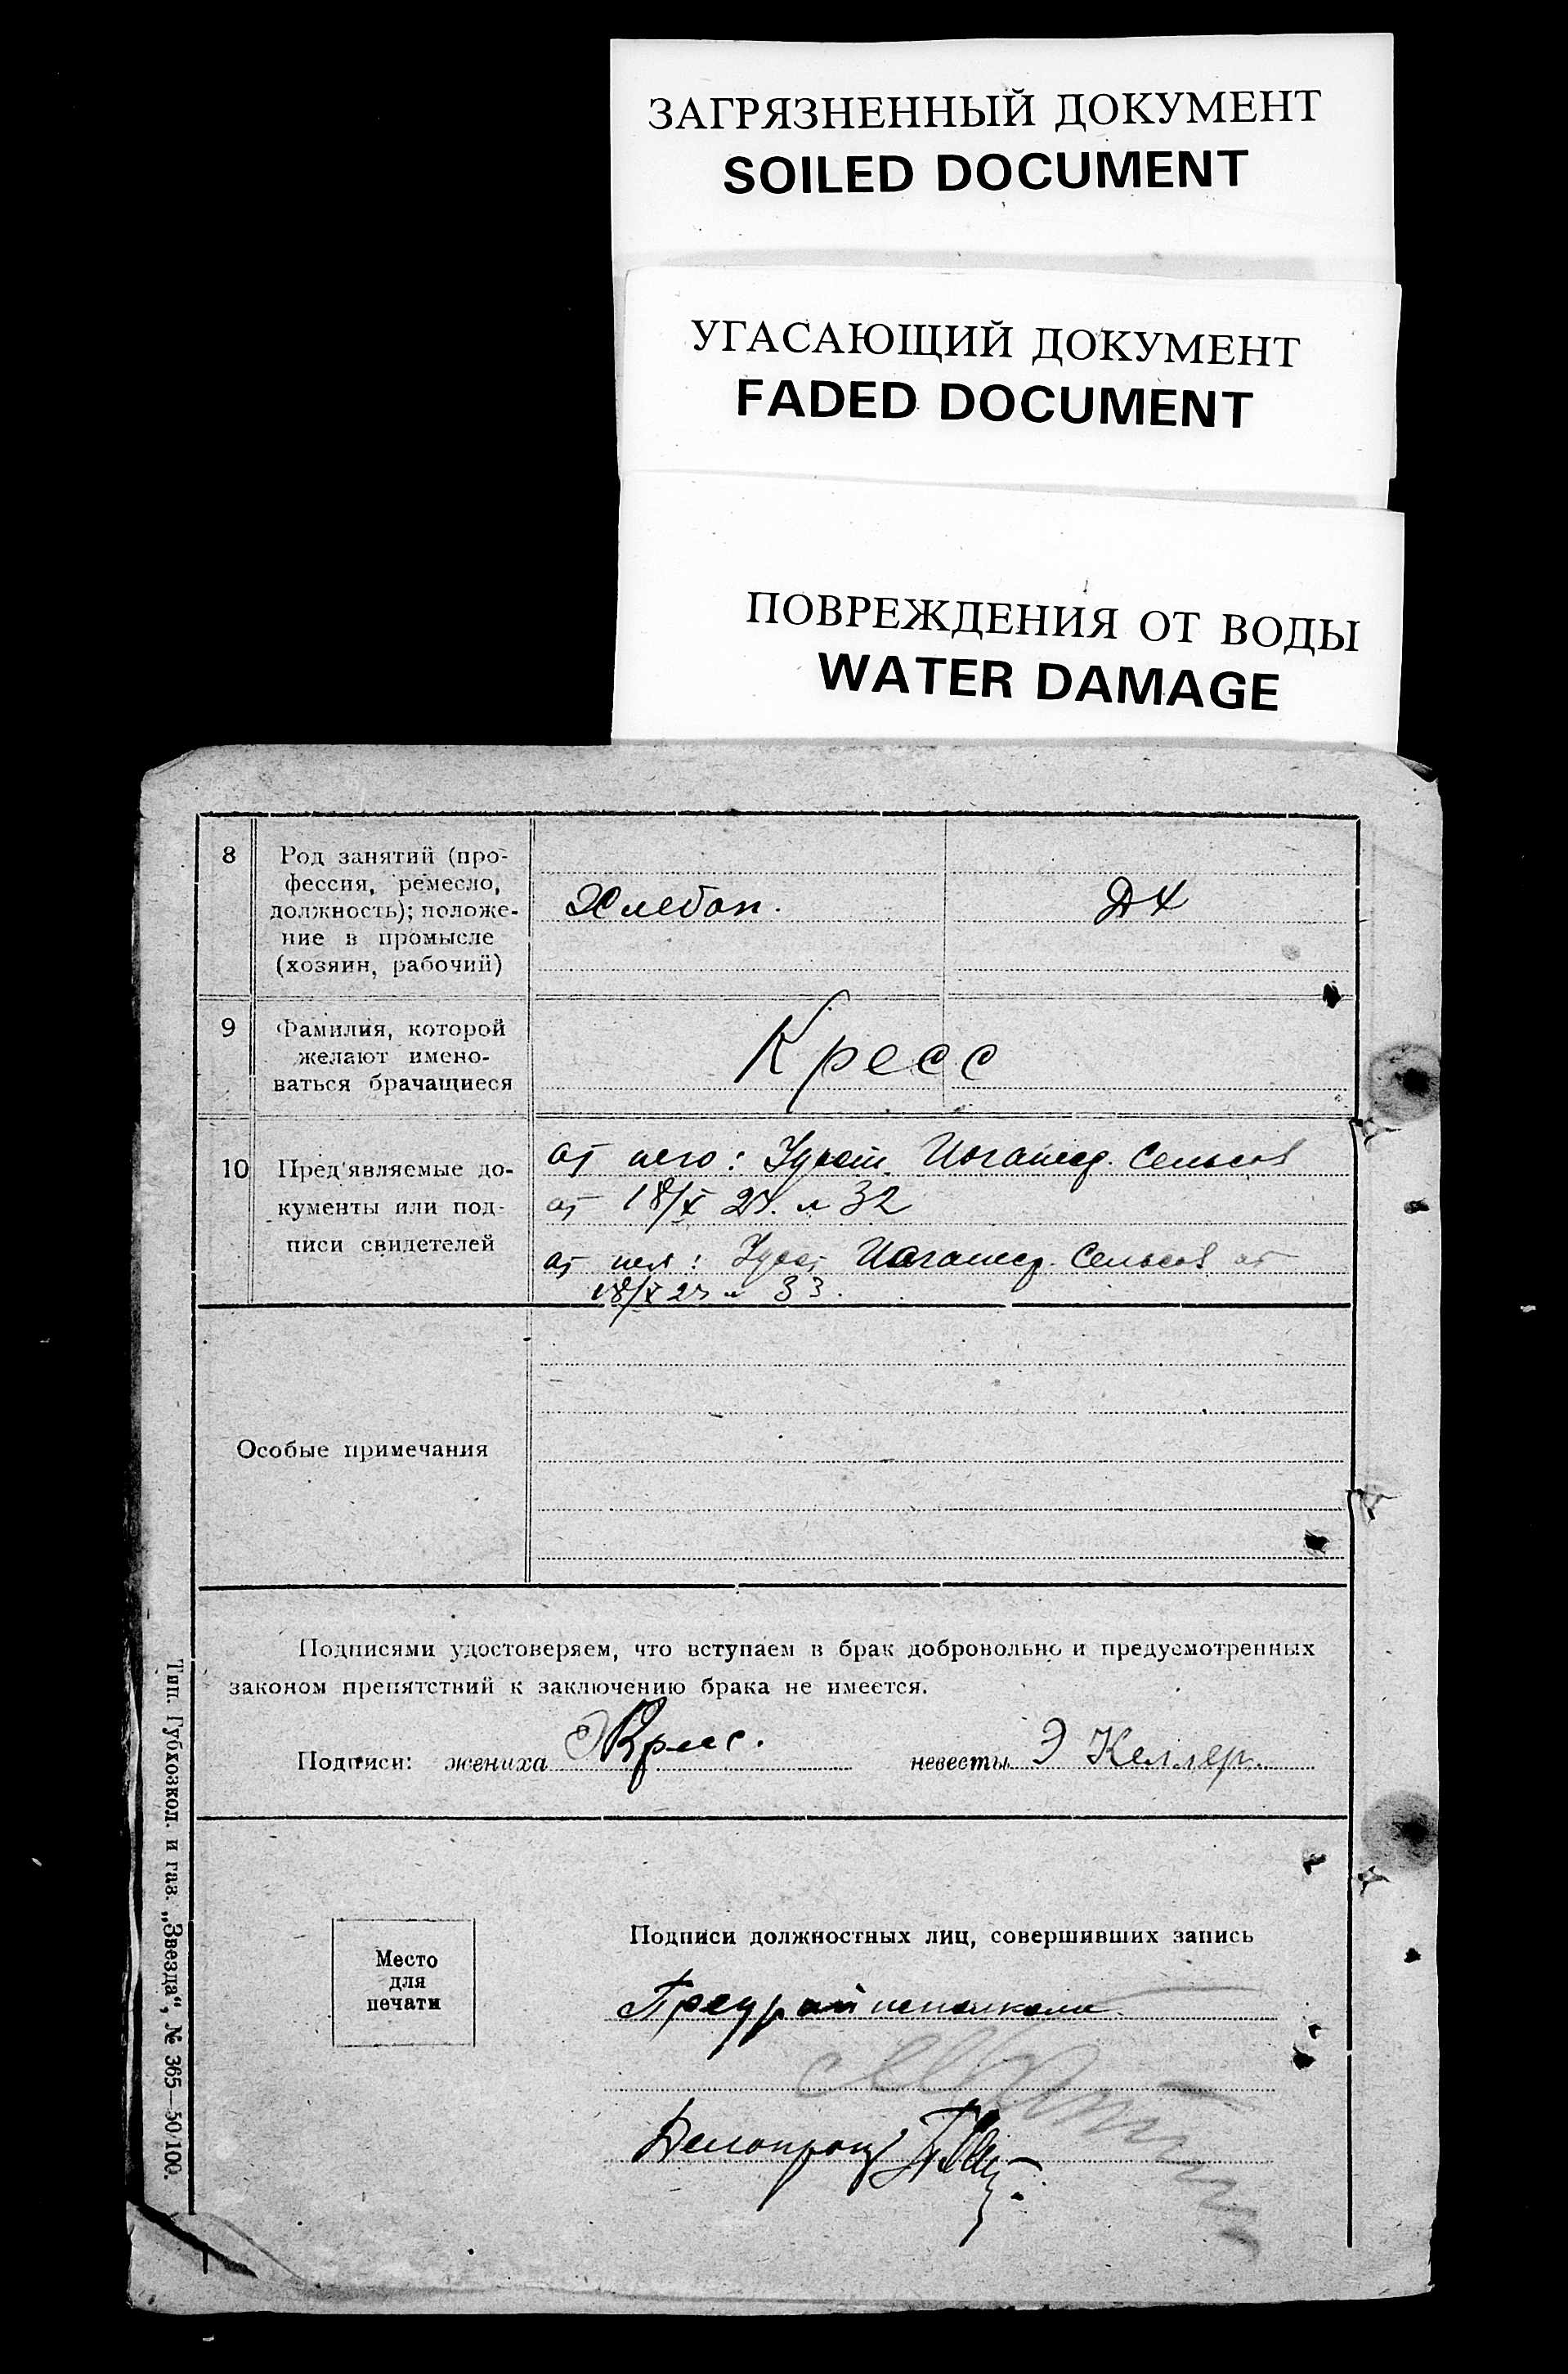 ЗАГРЯЗНЕННЫЙ ДОКУМЕНТ
SOILED DOCUMENT
УГАСАЮЩИЙ ДОКУМЕНТ
FADED DOCUMENT
ПОВРЕЖДЕНИЯ ОТ ВОДЫ
WATER DAMAGE
8 Род занятий (про-
фессия, ремесло,
должность); положе-
ние в промысле
(хозяин, рабочий)
Хлебоп. ДХ
9 Фамилия, которой
желают имено-
ваться брачащиеся
Кресс
10 Пред'являемые до-
кументы или под-
писи свидетелей
от него: Удост. Сельсов
от 18/X 27. № 32
от нея: Удост Сельсов от
18/X 27 № 33.
Особые примечания
Подписями удостоверяем, что вступаем в брак добровольно и предусмотренных
законом препятствий к заключению брака не имеется.
Подписи: жениха Кресс. невесты Э Келлер.
Место
для
печати
Подписи должностных лиц, совершивших запись
Предрайисполкома
Делопроиз
Тип. Губхозкол. и газ. „Звезда", № 365—50/100.